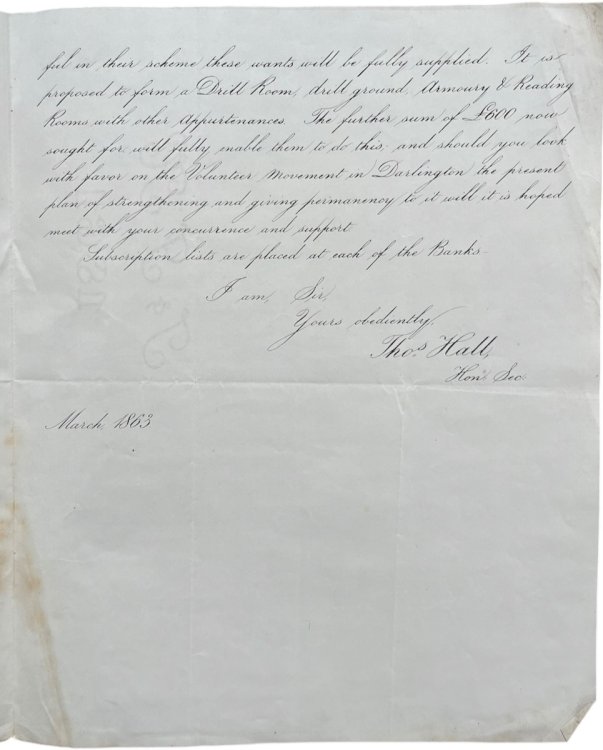 ful in their scheme these wants will be fully supplied. It is
proposed to form a Drill Room, drill ground, Armoury & Reading
Rooms, with other Appurtenances. The further sum of £600 now
sought for, will fully enable them to do this; and should you look
with favor on the Volunteer Movement in Darlington the present
plan of strengthening and giving permanency to it will it is hoped
meet with your concurrence and support
Subscription lists are placed at each of the Banks.
I am, Sir,
Yours obediently,
Thos. Hall,
Hon. Sec.
March, 1863